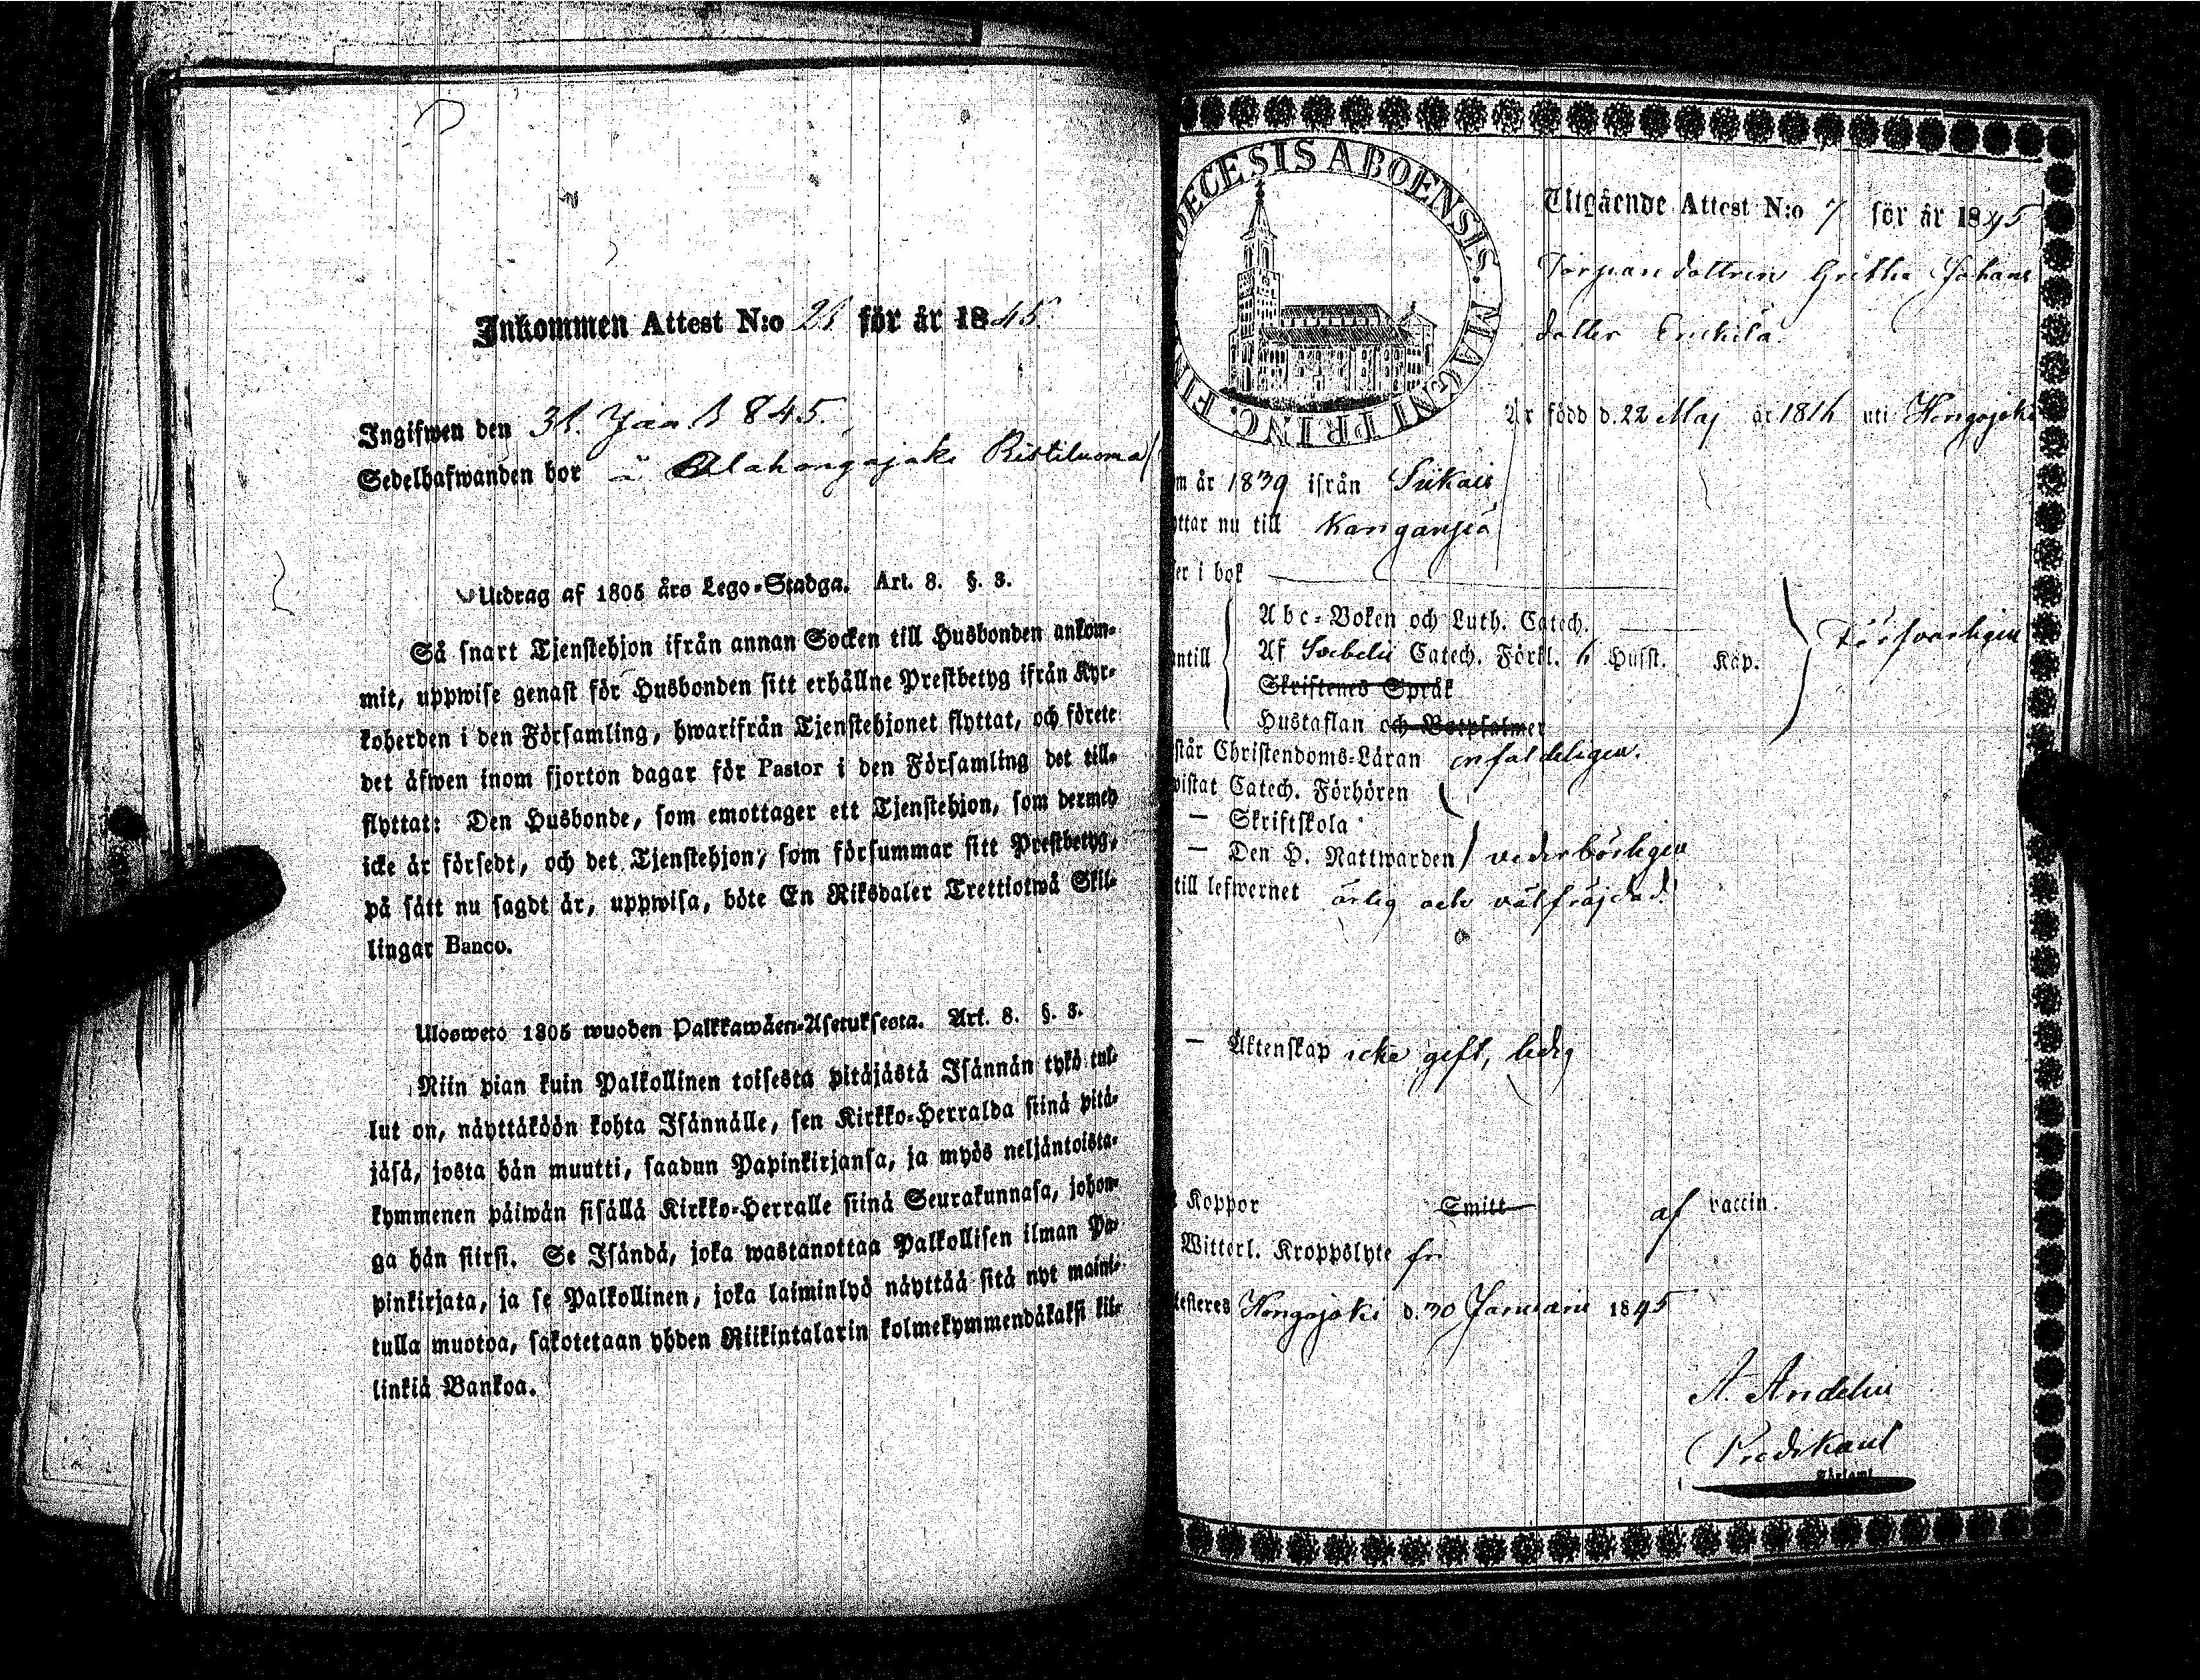 Inkommen Attest N:o 23 för år 1845.
Ingifwen den 31. Jan 1845.
Sedelhafwanden bor i Alahongajoki Ristiluoma
Utdrag af 1805 års Lego-Stadga. Art. 8. §. 3.
Så snart Tjenstehjon ifrån annan Socken till Husbonden ankom-
mit, uppwise genast för Husbonden sitt erhållne Prestbetyg ifrån Kyr-
koherden i den Församling, hwarifrån Tjenstehjonet flyttat, och förete
det äfwen inom fjorton dagar för Pastor i den Församling det till-
flyttat: Den Husbonde, som emottager ett Tjenstehjon, som dermed
icke är försedt, och det Tjenstehjon, som försummar sitt Prestbetyg,
på sätt nu sagdt är, uppwisa, böte En Riksdaler Trettiotwå Skil-
lingar Banco.
Ulosweto 1805 wuoden Palkkawäen-Asetuksesta. Art. 8. §. 3.
Niin pian kuin Palkollinen toisesta pitäjästä Isännän tykö tul-
lut on, näyttäköön kohta Isännälle, sen Kirkko-Herralda siinä pitä-
jäsä, josta hän muutti, saadun Papinkirjansa, ja myös neljäntoista-
kymmenen päiwän sisällä Kirkko-Herralle siinä Seurakunnasa, johon-
ga hän siirsi. Se Isändä, joka wastanottaa Palkollisen ilman Pa-
pinkirjata, ja se Palkollinen, joka laiminlyö näyttää sitä nyt maini-
tulla muotoa, sakotetaan yhden Riikintalarin kolmekymmendäkaksi kil-
linkiä Bankoa.
DECESIS ABOENSIS. MAGNI PRINC. FIN
Utgående Attest N:o 7 för år 1845
Torpare dottren Gretha Johans
dotter Erickilä.
Är född d. 22 Maj år 1816 uti Hongojoki
m år 1839 ifrån Siikais
ttar nu till Kanganpiä
er i bok
ntill
Abc-Boken och Luth. Catech.
Af Svebelii Catech. Förkl. 6 Husst. Kap.
Försvarligen
Skriftenes Språk
Hustaflan och Botpsalmer
står Christendoms-Läran enfaldeligen.
wistat Catech. Förhören
— Skriftskola
— Den H. Nattwarden vederbörligen
till lefwernet ärlig och välfräjdad.
— Äktenskap icke gift, ledig
Koppor Smitt af vaccin.
Witterl. Kroppslyte fri
testeres Hongojoki d. 30 Januari 1845
A. Andelin
Predikant